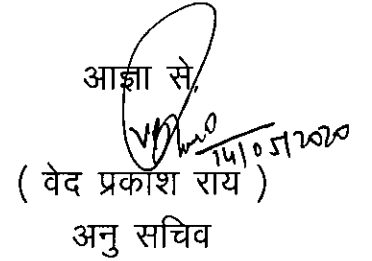 आज्ञा से,
14/05/2020
( वेद प्रकाश राय )
अनु सचिव